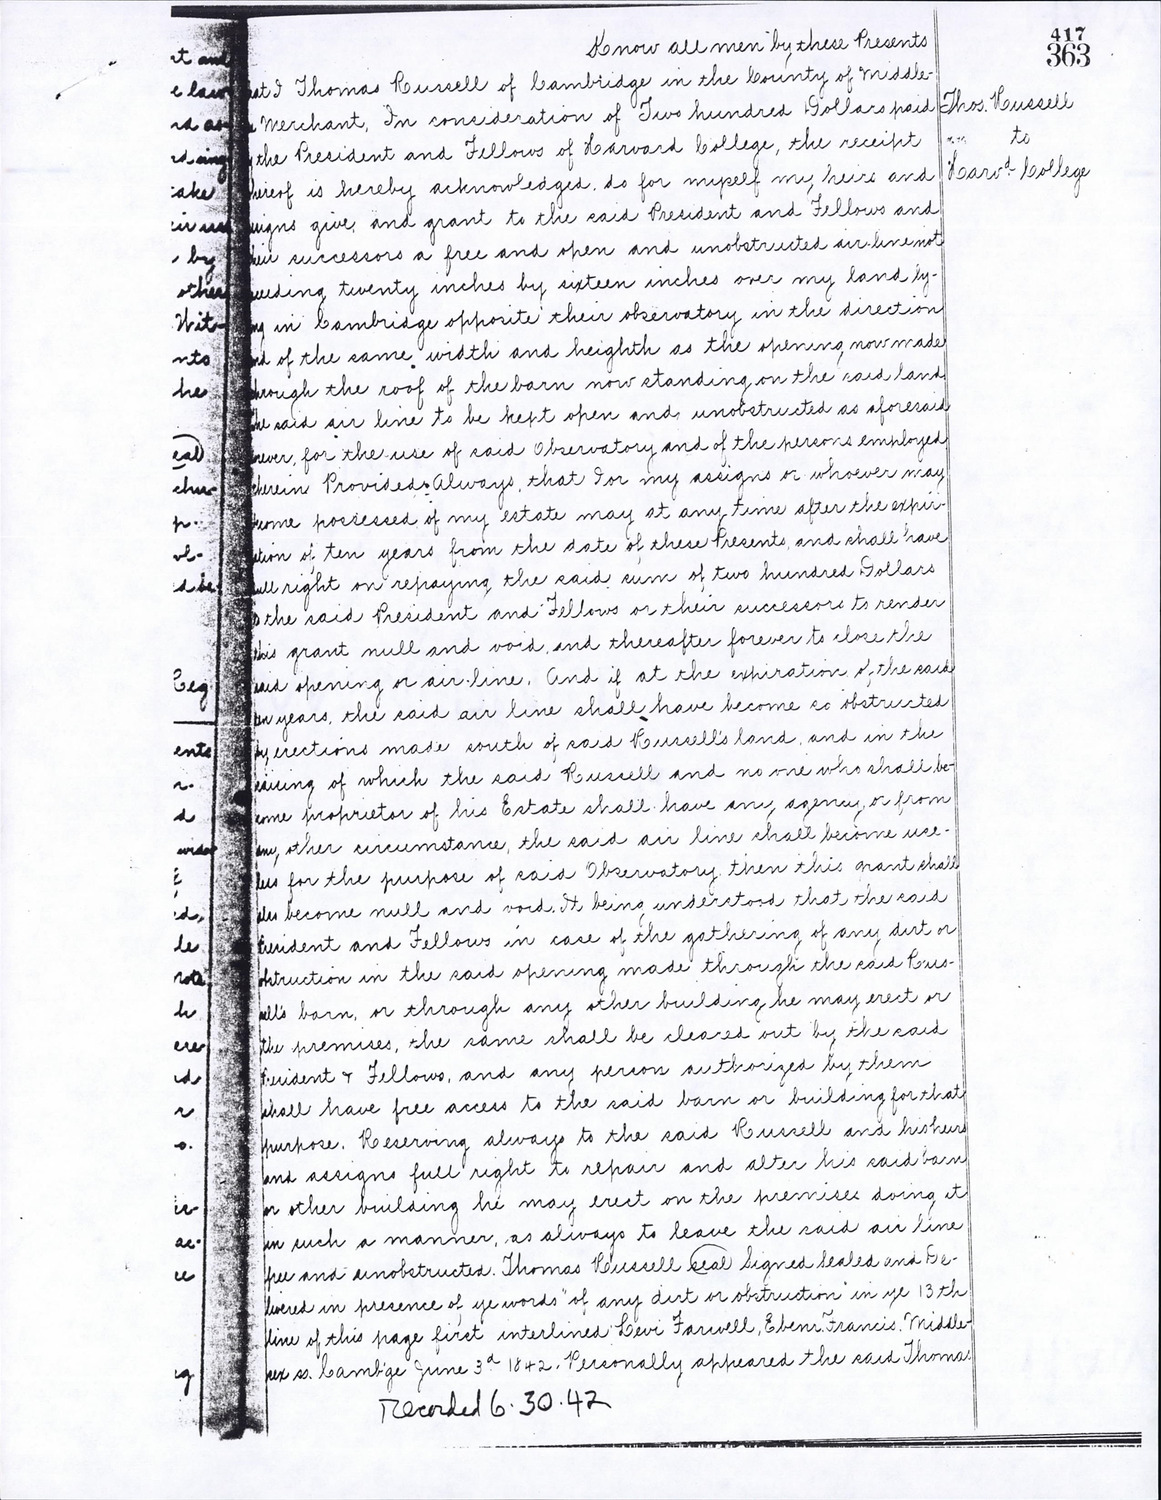 417
363
Thos. Russell
to
Harvd. College
Know all men by these Presents
hat I Thomas Russell of Cambridge in the County of Middle-
Merchant, In consideration of Two hundred Dollars paid
the President and Fellows of Harvard College, the receipt
hereof is hereby acknowledged. do for myself my heirs and
signs give, and grant to the said President and Fellows and
heir successors a free and open and unobstructed air-line not
ceeding twenty inches by sixteen inches over my land ly-
ng in Cambridge opposite their observatory in the direction
nd of the same width and heighth as the opening now made
hrough the roof of the barn now standing on the said land,
the said air line to be kept open and unobstructed as aforesaid
rever, for the use of said Observatory and of the persons employed
therein Provided Always, that I or my assigns or whoever may
come possessed of my estate may at any time after the expir-
ation of ten years from the date of these Presents, and shall have
ull right on repaying the said sum of two hundred Dollars
o the said President and Fellows or their successors to render
this grant null and void, and thereafter forever to close the
said opening or air-line. And if at the expiration of the said
ten years, the said air line shall have become so obstructed
by erections made south of said Russell's land, and in the
raising of which the said Russell and no one who shall be-
come proprietor of his Estate shall have any agency, or from
any other circumstance, the said air line shall become use-
less for the purpose of said Observatory then this grant shall
also become null and void. It being understood that the said
President and Fellows in case of the gathering of any dirt or
obstruction in the said opening made through the said Rus-
sell's barn, or through any other building he may erect or
the premises, the same shall be cleared out by the said
President & Fellows, and any person authorized by them
shall have free access to the said barn or building for that
purpose. Reserving always to the said Russell and his heirs
and assigns full right to repair and alter his said barn
or other building he may erect on the premises doing it
in such a manner, as always to leave the said air line
free and unobstructed. Thomas Russell seal Signed Sealed and De-
livered in presence of ye words "of any dirt or obstruction" in ye 13th
line of this page first interlined Levi Farwell, Ebenr. Francis. Middle-
sex ss. Camb'ge June 3d 1842. Personally appeared the said Thomas
Recorded 6.30.42